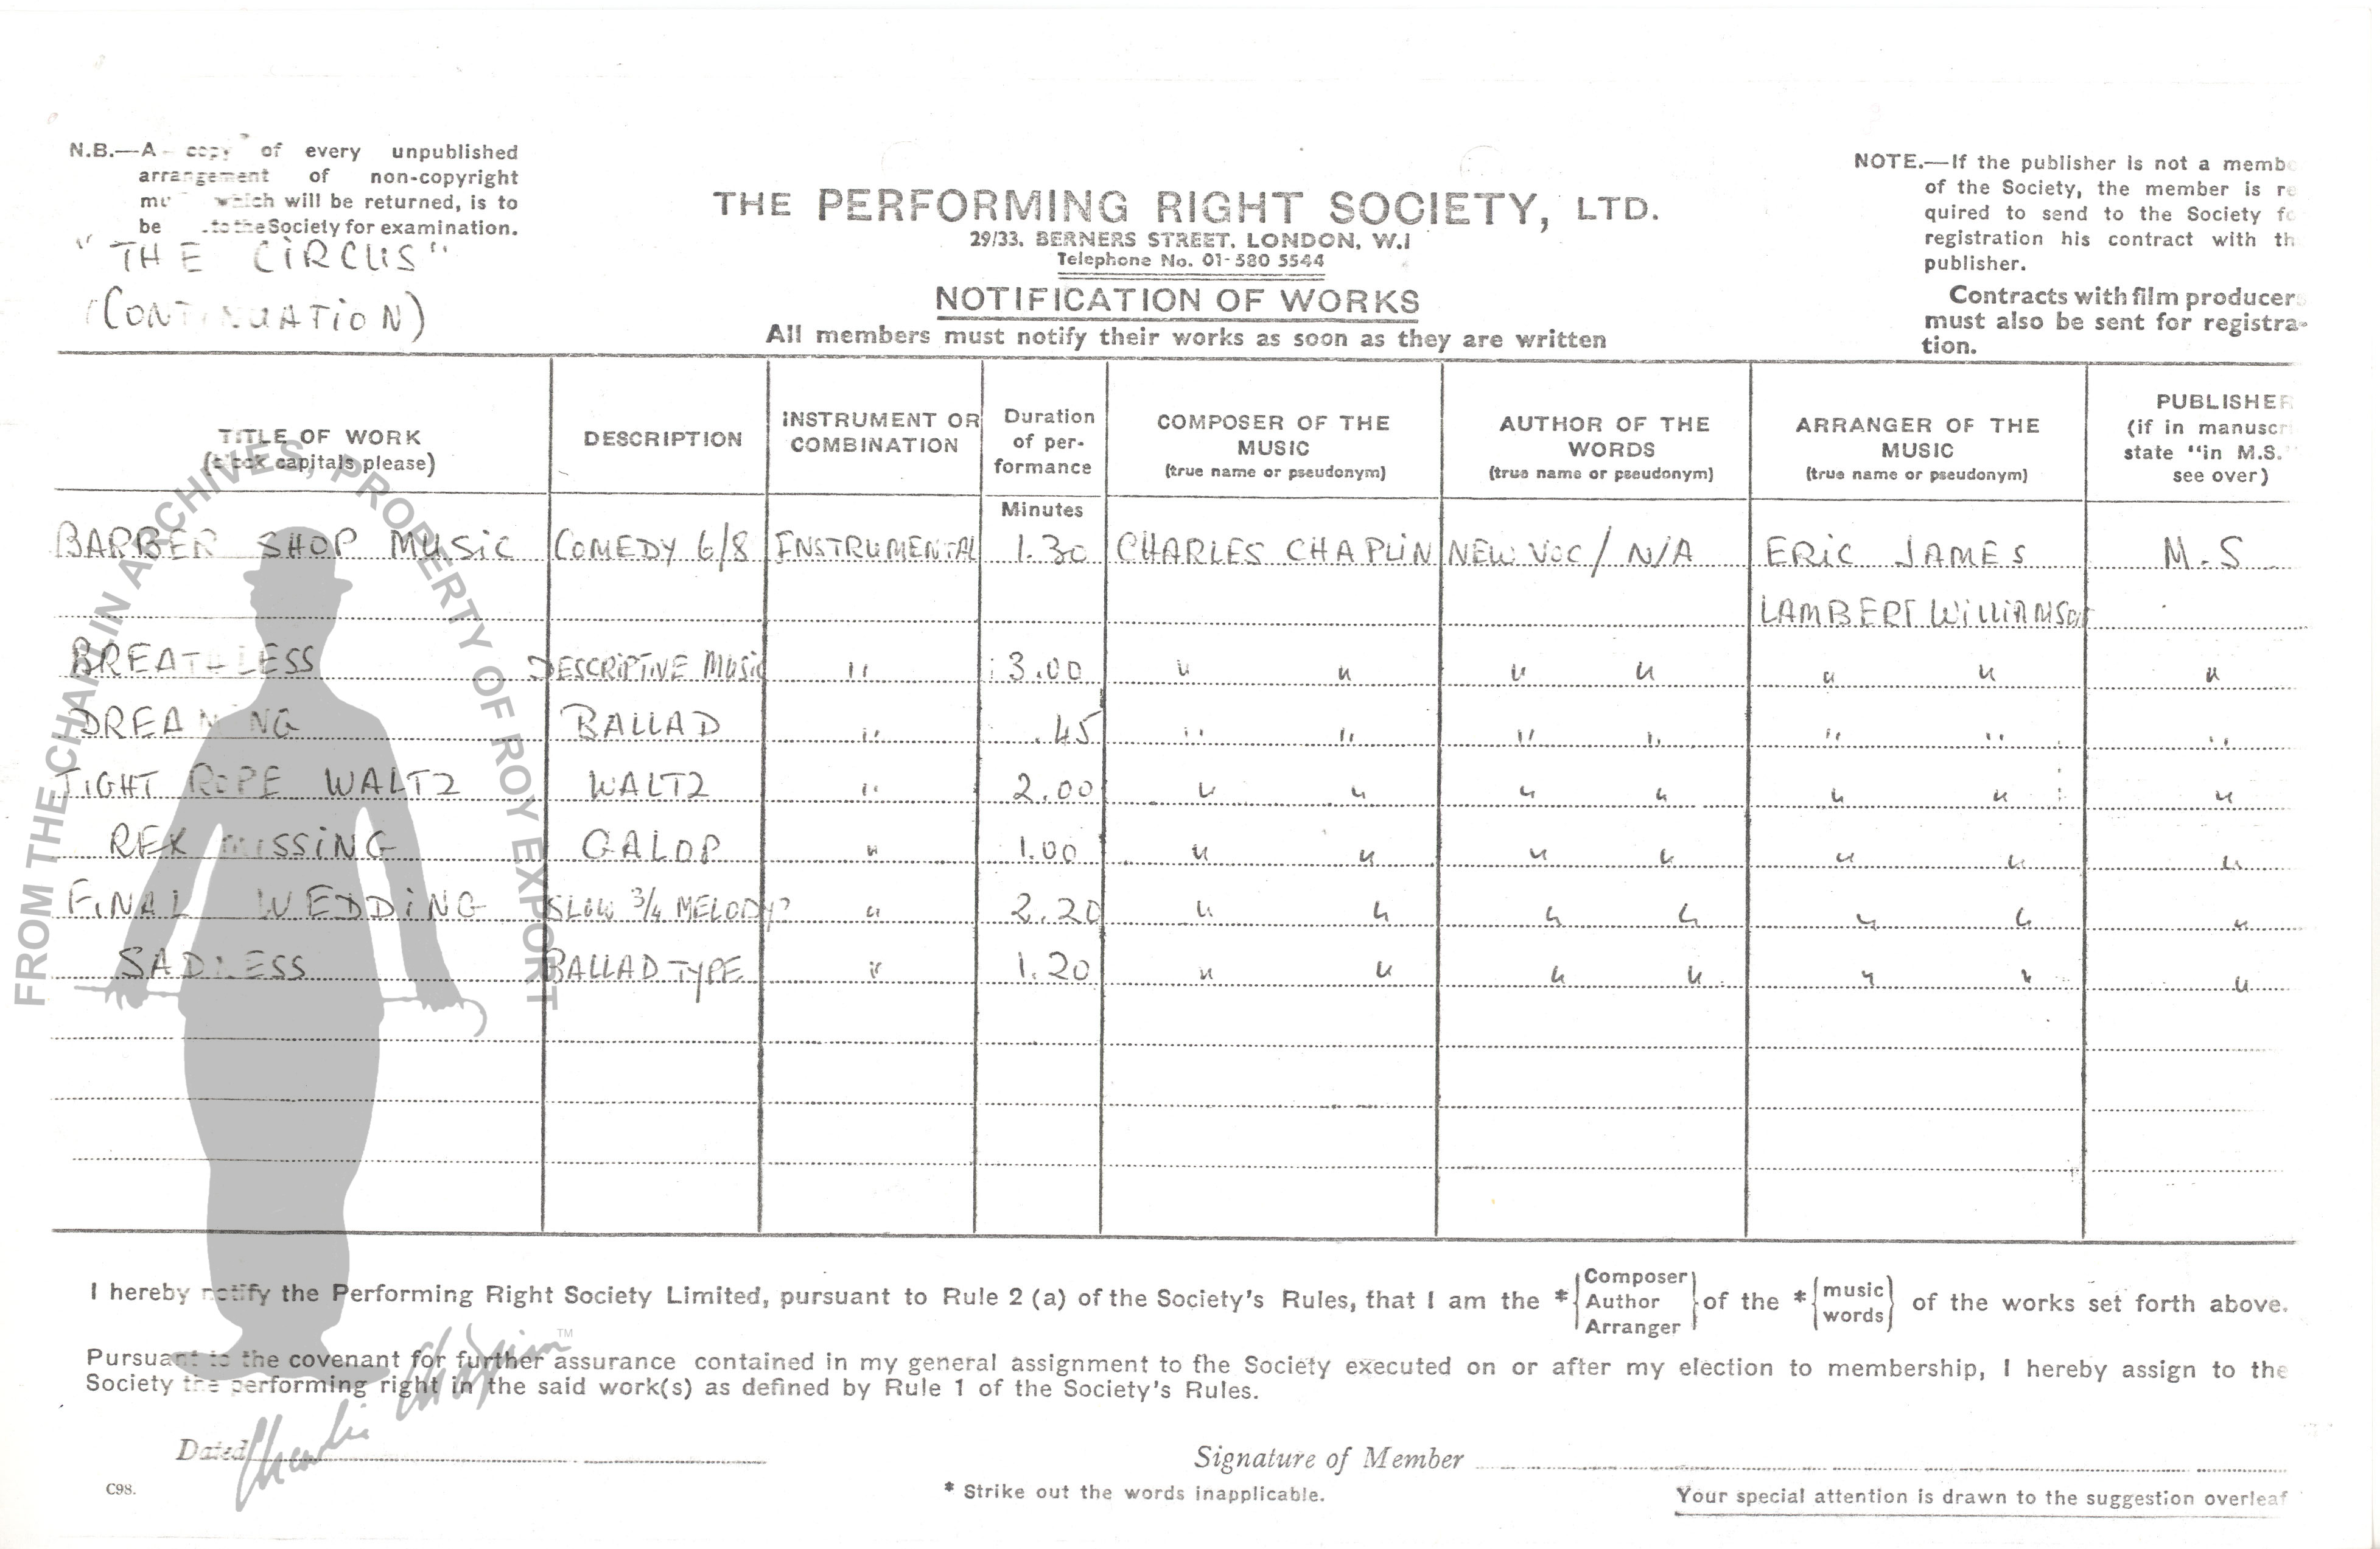 N.B.—A copy of every unpublished
arrangement of non-copyright
which will be returned, is to
be to the Society for examination.
"THE CIRCUS"
(CONTINUATION)
THE PERFORMING RIGHT SOCIETY, LTD.
29/33, BERNERS STREET, LONDON, W.1
Telephone No. 01-580 5544
NOTIFICATION OF WORKS
All members must notify their works as soon as they are written
NOTE.—If the publisher is not a membe
of the Society, the member is re
quired to send to the Society fo
registration his contract with th
publisher.
Contracts with film producer
must also be sent for registra-
tion.
TITLE OF WORK
(block capitals please)
DESCRIPTION
INSTRUMENT OR
COMBINATION
Duration
of per-
formance
Minutes
COMPOSER OF THE
MUSIC
(true name or pseudonym)
AUTHOR OF THE
WORDS
(true name or pseudonym)
ARRANGER OF THE
MUSIC
(true name or pseudonym)
PUBLISHER
(if in manuscri
state "in M.S."
see over)
BARBER SHOP MUSIC COMEDY 6/8 INSTRUMENTAL 1.30 CHARLES CHAPLIN NEW VOC / N/A ERIC JAMES M.S
LAMBERT WILLIAMSON
BREATHLESS DESCRIPTIVE MUSIC " 3.00 " " " " " " "
DREAMING BALLAD " .45 " " " " " " "
TIGHT ROPE WALTZ WALTZ " 2.00 " " " " " " "
REX MISSING GALOP " 1.00 " " " " " " "
FINAL WEDDING SLOW 3/4 MELODY " 2.20 " " " " " " "
SADNESS BALLAD TYPE " 1.20 " " " " " " "
I hereby notify the Performing Right Society Limited, pursuant to Rule 2 (a) of the Society's Rules, that I am the * {Composer Author Arranger} of the * {music words} of the works set forth above.
Pursuant to the covenant for further assurance contained in my general assignment to the Society executed on or after my election to membership, I hereby assign to the
Society the performing right in the said work(s) as defined by Rule 1 of the Society's Rules.
Dated
Signature of Member
C98.
* Strike out the words inapplicable.
Your special attention is drawn to the suggestion overleaf
FROM THE CHAPLIN ARCHIVES, PROPERTY OF ROY EXPORT
Charlie Chaplin™